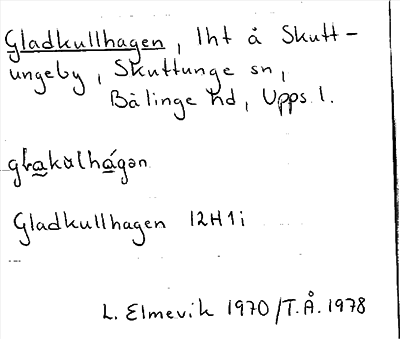 Gladkullhagen, lht å Skutt-
ungeby, Skuttunge sn,
Bälinge hd, Upps l.
Gladkullhagen 12H1i
L. Elmevik 1970/T.Å. 1978